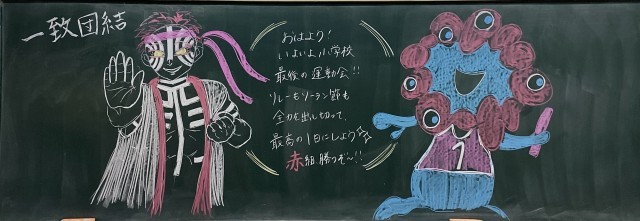 一致団結
おはよう!
いよいよ小学校
最後の運動会!!
リレーもソーラン節も
全力を出し切って、
最高の1日にしよう
赤組勝つぞ〜!!
1